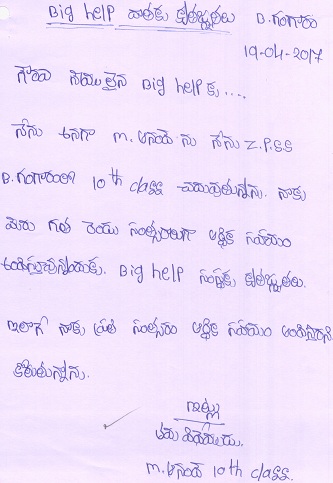 Big help వారికి కృతజ్ఞతలు B.గంగారం
19-04-2017
గౌరవ నీయులైన Big help కు....
నేను అనగా m. ను నేను Z.P.S.S
B.గంగారంలో 10th class చదువుతున్నాను. నాకు
మీరు గత రెండు సంవత్సరాలుగా ఆర్థిక సహాయం
Big help సంస్థకు కృతజ్ఞతలు.
ఇలాగే నాకు ప్రతి సంవత్సరం ఆర్థిక సహాయం
కోరుతున్నాను.
ఇట్లు
తమ విధేయుడు.
m. 10th class.